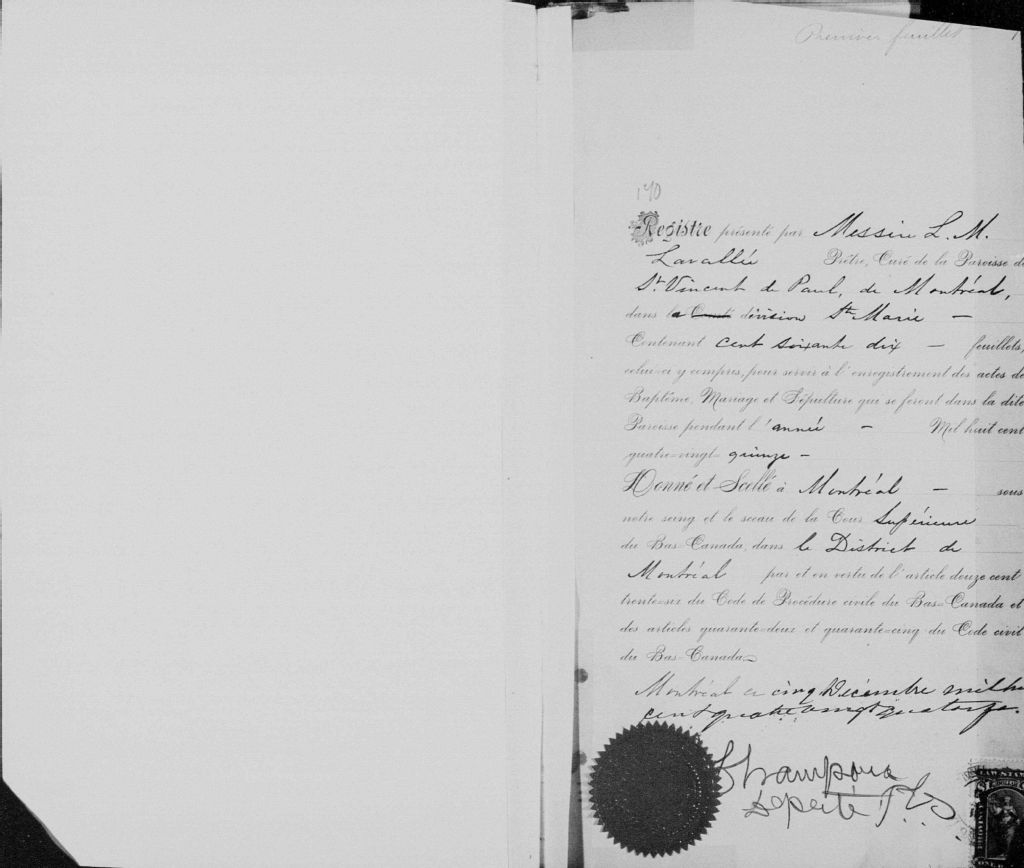 Premier feuillet 1
170
Registre présenté par Messire L. M.
Lavallée Prêtre, Curé de la Paroisse de
St. Vincent de Paul, de Montréal,
dans la Comté division Ste Marie —
Contenant cent soixante dix — feuillets,
celui-ci y compris, pour servir à l'enregistrement des actes de
Baptême, Mariage et Sépulture qui se feront dans la dite
Paroisse pendant l'année — Mil huit cent
quatre-vingt- quinze —
Donné et Scellé à Montréal — sous
notre seing et le sceau de la Cour Supérieure
du Bas-Canada, dans le District de
Montréal par et en vertu de l'article douze cent
trente-six du Code de Procédure civile du Bas-Canada et
des articles quarante-deux et quarante-cinq du Code civil
du Bas-Canada
Montréal ce cinq Décembre mil hu
cent quatre vingt quatorze.
Députe P.C.S.
LAW STAMP